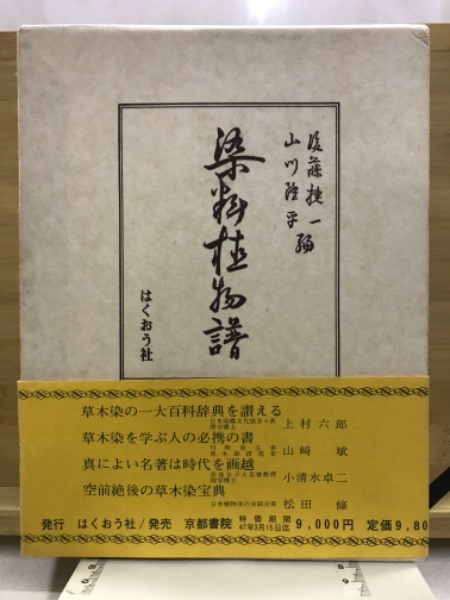 後藤捷一
山川隆平 編
染料植物譜
はくおう社
草木染の一大百科辞典を讃える
上村六郎
草木染を学ぶ人の必携の書
山崎 斌
真によい名著は時代を画越
小清水卓二
空前絶後の草木染宝典
松田 修
発行 はくおう社/発売 京都書院 特価期間 47年3月15日迄 9,000円 定価9,80